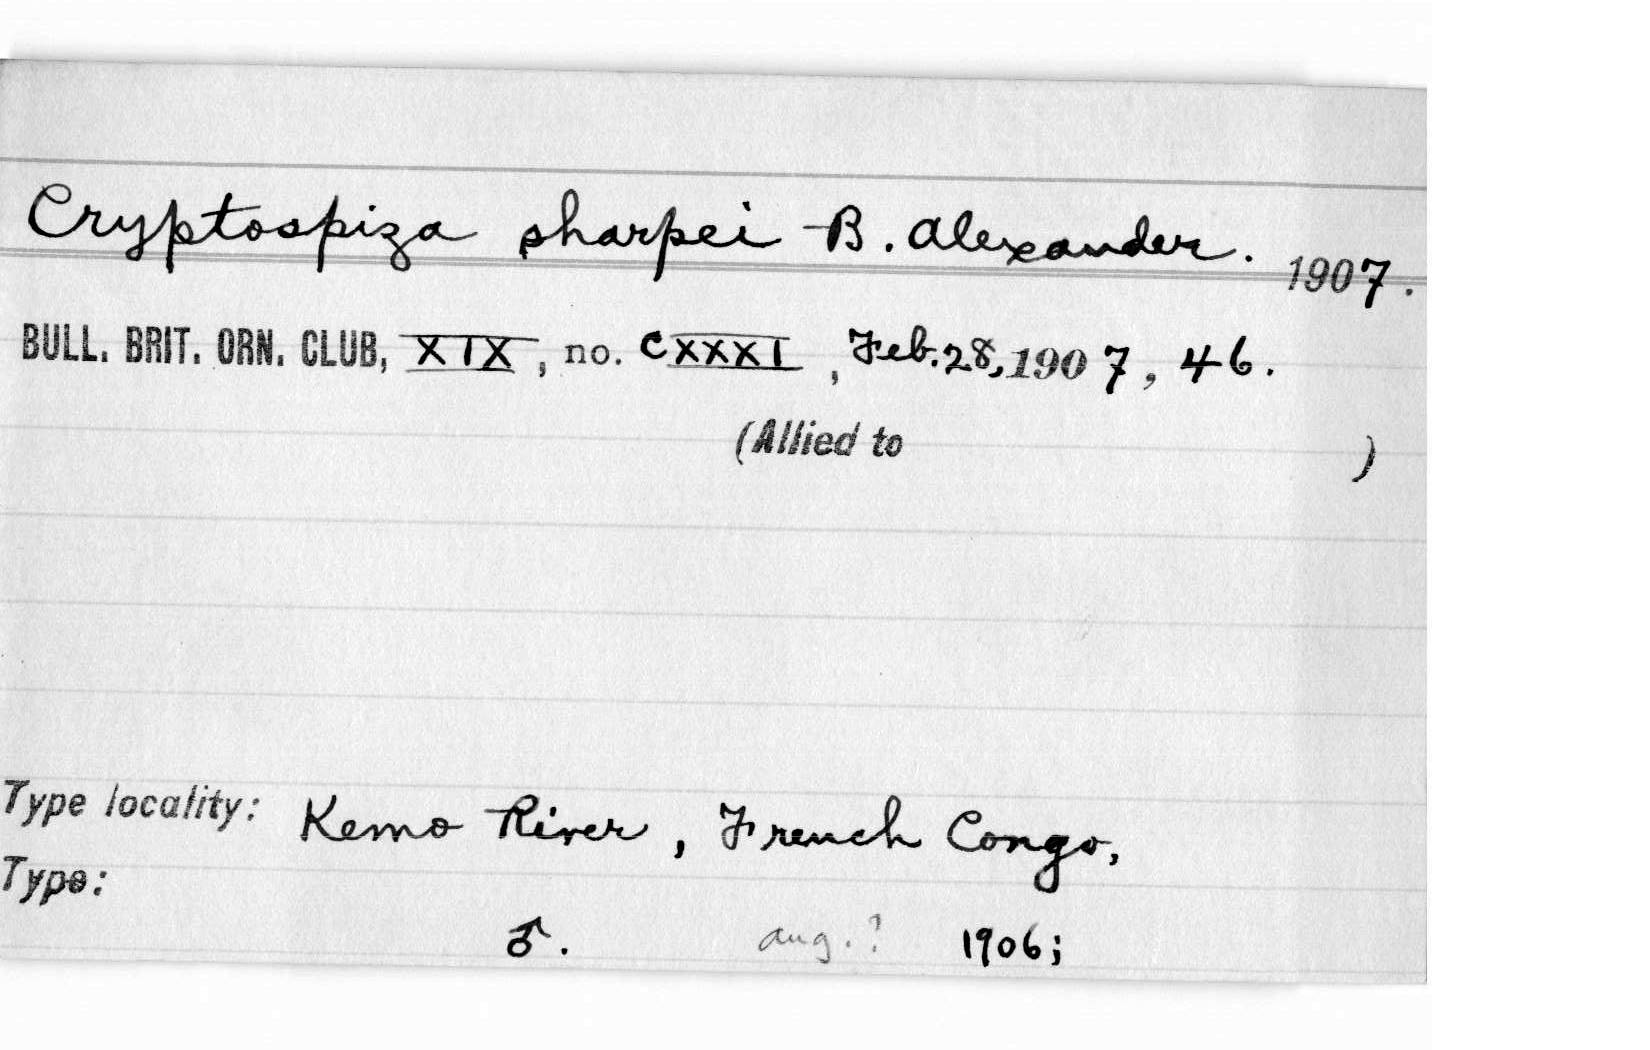 Cryptospiza sharpei B. Alexander. 1907.
BULL. BRIT. ORN. CLUB, XIX, no. CXXXI, Feb. 28, 1907, 46.
(Allied to )
Type locality: Kemo River, French Congo,
Type:
♂. Aug.? 1906;